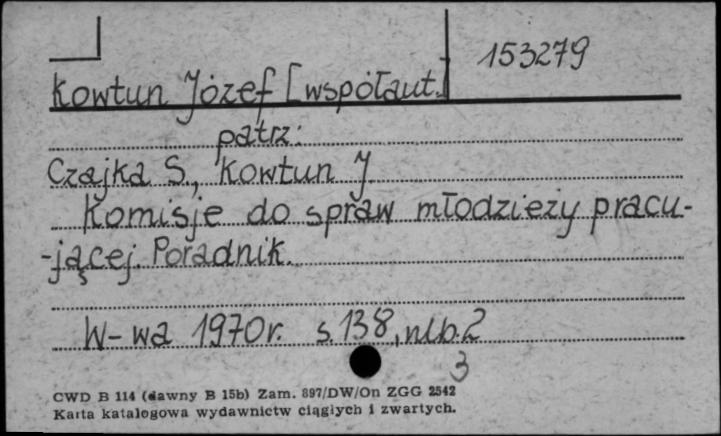 153279
Kowtun Józef [współaut.]
patrz:
Czajka S., Kowtun J
Komisje do spraw młodzieży pracu-
-jącej. Poradnik.
W-wa 1970r. s. 138, nlb. 2
3
CWD B 114 (dawny B 15b) Zam. 897/DW/On ZGG 2542
Karta katalogowa wydawnictw ciągłych i zwartych.